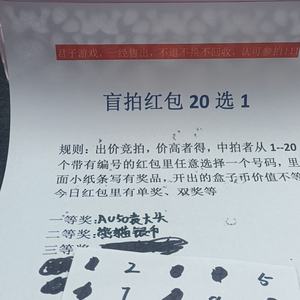 君子游戏，一经售出，不退不换不回收，认可参拍!!!
盲拍红包 20 选 1
规则：出价竞拍，价高者得，中拍者从 1--20
个带有编号的红包里任意选择一个号码，里
面小纸条写有奖品，开出的盒子币价值不等
今日红包里有单奖、双奖等
一等奖:AU50袁大头
二等奖:熊猫银币
三等奖
2
5
7